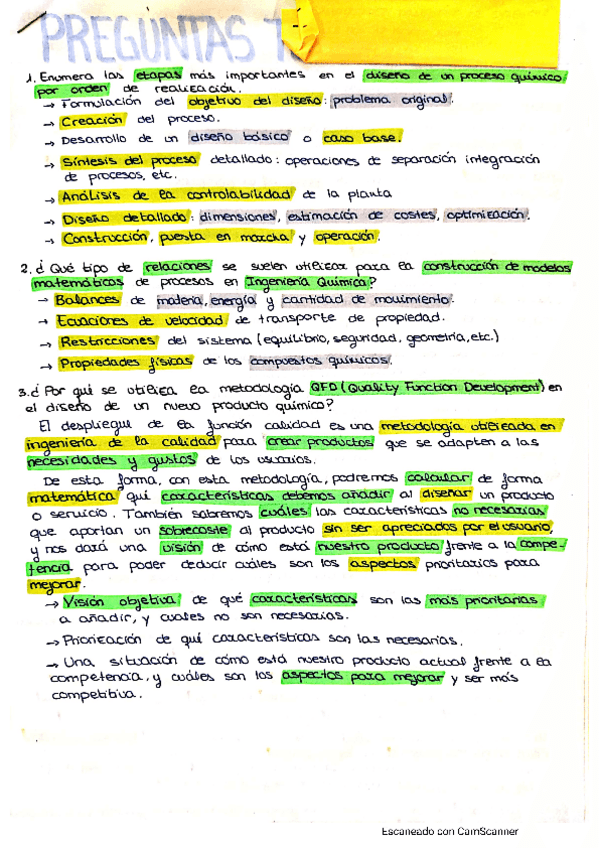 PREGUNTAS T
1. Enumera las etapas más importantes en el diseño de un proceso químico,
por orden de realización.
→ Formulación del objetivo del diseño: problema original.
→ Creación del proceso.
→ Desarrollo de un diseño básico o caso base.
→ Síntesis del proceso detallado: operaciones de separación integración
de procesos, etc.
→ Análisis de la controlabilidad de la planta
→ Diseño detallado: dimensiones, estimación de costes, optimización.
→ Construcción, puesta en marcha y operación.
2. ¿Qué tipo de relaciones se suelen utilizar para la construcción de modelos
matemáticos de procesos en Ingeniería Química?
→ Balances de materia, energía y cantidad de movimiento.
→ Ecuaciones de velocidad de transporte de propiedad.
→ Restricciones del sistema (equilibrio, seguridad, geometría, etc.)
→ Propiedades físicas de los compuestos químicos.
3. ¿Por qué se utiliza la metodología QFD (Quality Function Development) en
el diseño de un nuevo producto químico?
El despliegue de la función calidad es una metodología utilizada en
ingeniería de la calidad para crear productos que se adapten a las
necesidades y gustos de los usuarios.
De esta forma, con esta metodología, podremos calcular de forma
matemática qué características debemos añadir al diseñar un producto
o servicio. También sabremos cuáles las características no necesarias
que aportan un sobrecoste al producto sin ser apreciados por el usuario,
y nos dará una visión de cómo está nuestro producto frente a la compe-
tencia para poder deducir cuáles son los aspectos prioritarios para
mejorar.
→ Visión objetiva de qué características son las más prioritarias
a añadir, y cuales no son necesarias.
→ Priorización de qué características son las necesarias.
→ Una situación de cómo está nuestro producto actual frente a la
competencia, y cuáles son los aspectos para mejorar y ser más
competitiva.
Escaneado con CamScanner